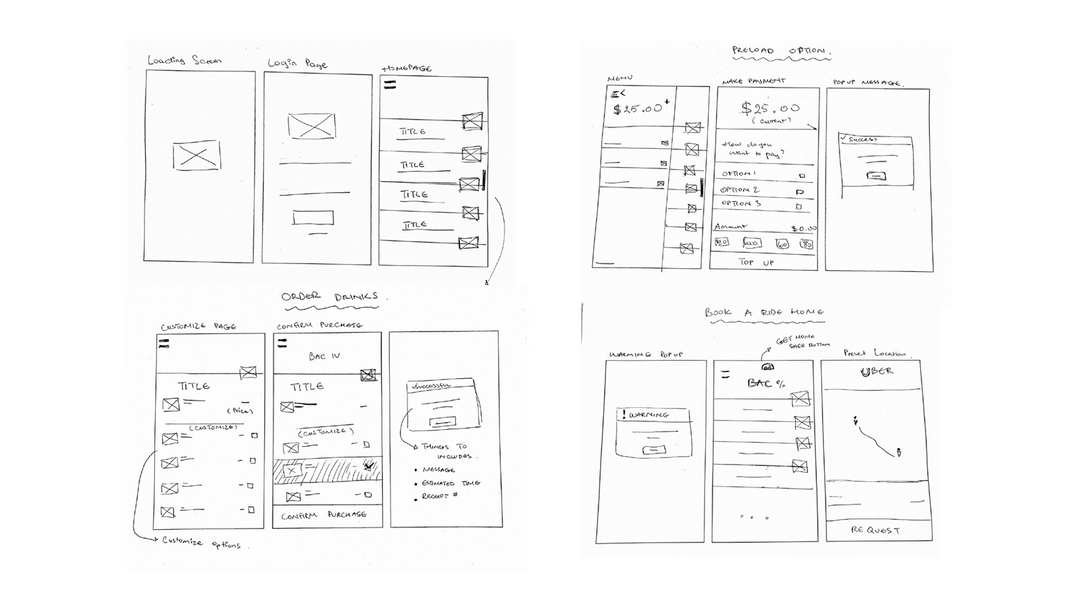 Loading Screen
Login Page
HOMEPAGE
TITLE
TITLE
TITLE
TITLE
PRELOAD OPTION.
MENU
$25.00+
MAKE PAYMENT
$25.00
(current)
How do you
want to pay?
OPTION 1
OPTION 2
OPTION 3
Amount $0.00
$20 $40 $60 $80
TOP UP
POP UP MESSAGE.
SUCCESS
ORDER DRINKS.
CUSTOMIZE PAGE
TITLE
(Price)
(CUSTOMIZE)
Customize options.
CONFIRM PURCHASE
TITLE
(CUSTOMIZE)
CONFIRM PURCHASE
SUCCESSFUL
THINGS TO
INCLUDES.
• MESSAGE
• ESTIMATED TIME
• RECEIPT #
BOOK A RIDE HOME
WARNING POP UP
! WARNING
GET HOME
SAFE BUTTON
BAC %
Preset Location.
UBER
REQUEST